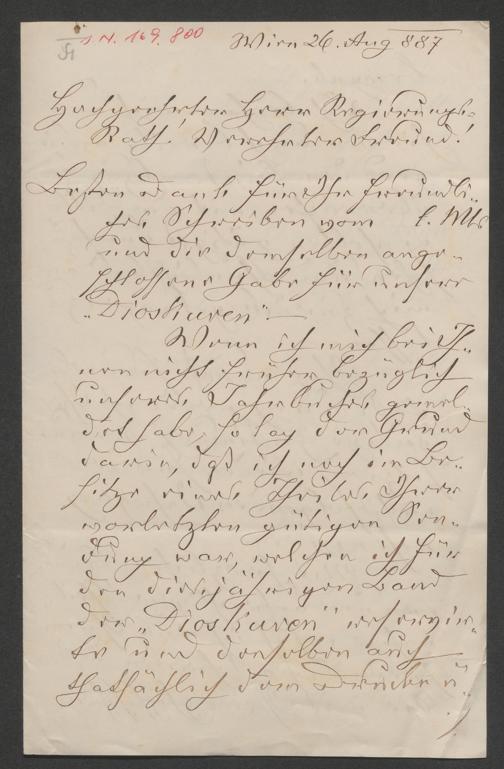 I. N. 169.800
Wien 26. Aug 887
Hochgeehrter Herr Regierungs-
Rath! Verehrter Freund!
Besten Dank für Ihr freundli-
ches Schreiben vom l. Mts
und die demselben ange-
schlossene Gabe für unsere
„Dioskuren“.—
Wenn ich mich bei Ih-
nen nicht früher bezüglich
unseres Jahrbuches gemel-
det habe, so lag der Grund
darin, daß ich noch im Be-
sitze eines Theiles Ihrer
vorletzten gütigen Sen-
dung war, welchen ich für
den diesjährigen Band
der „Dioskuren“ reservir-
te und denselben auch
thatsächlich dem Drucke ü-